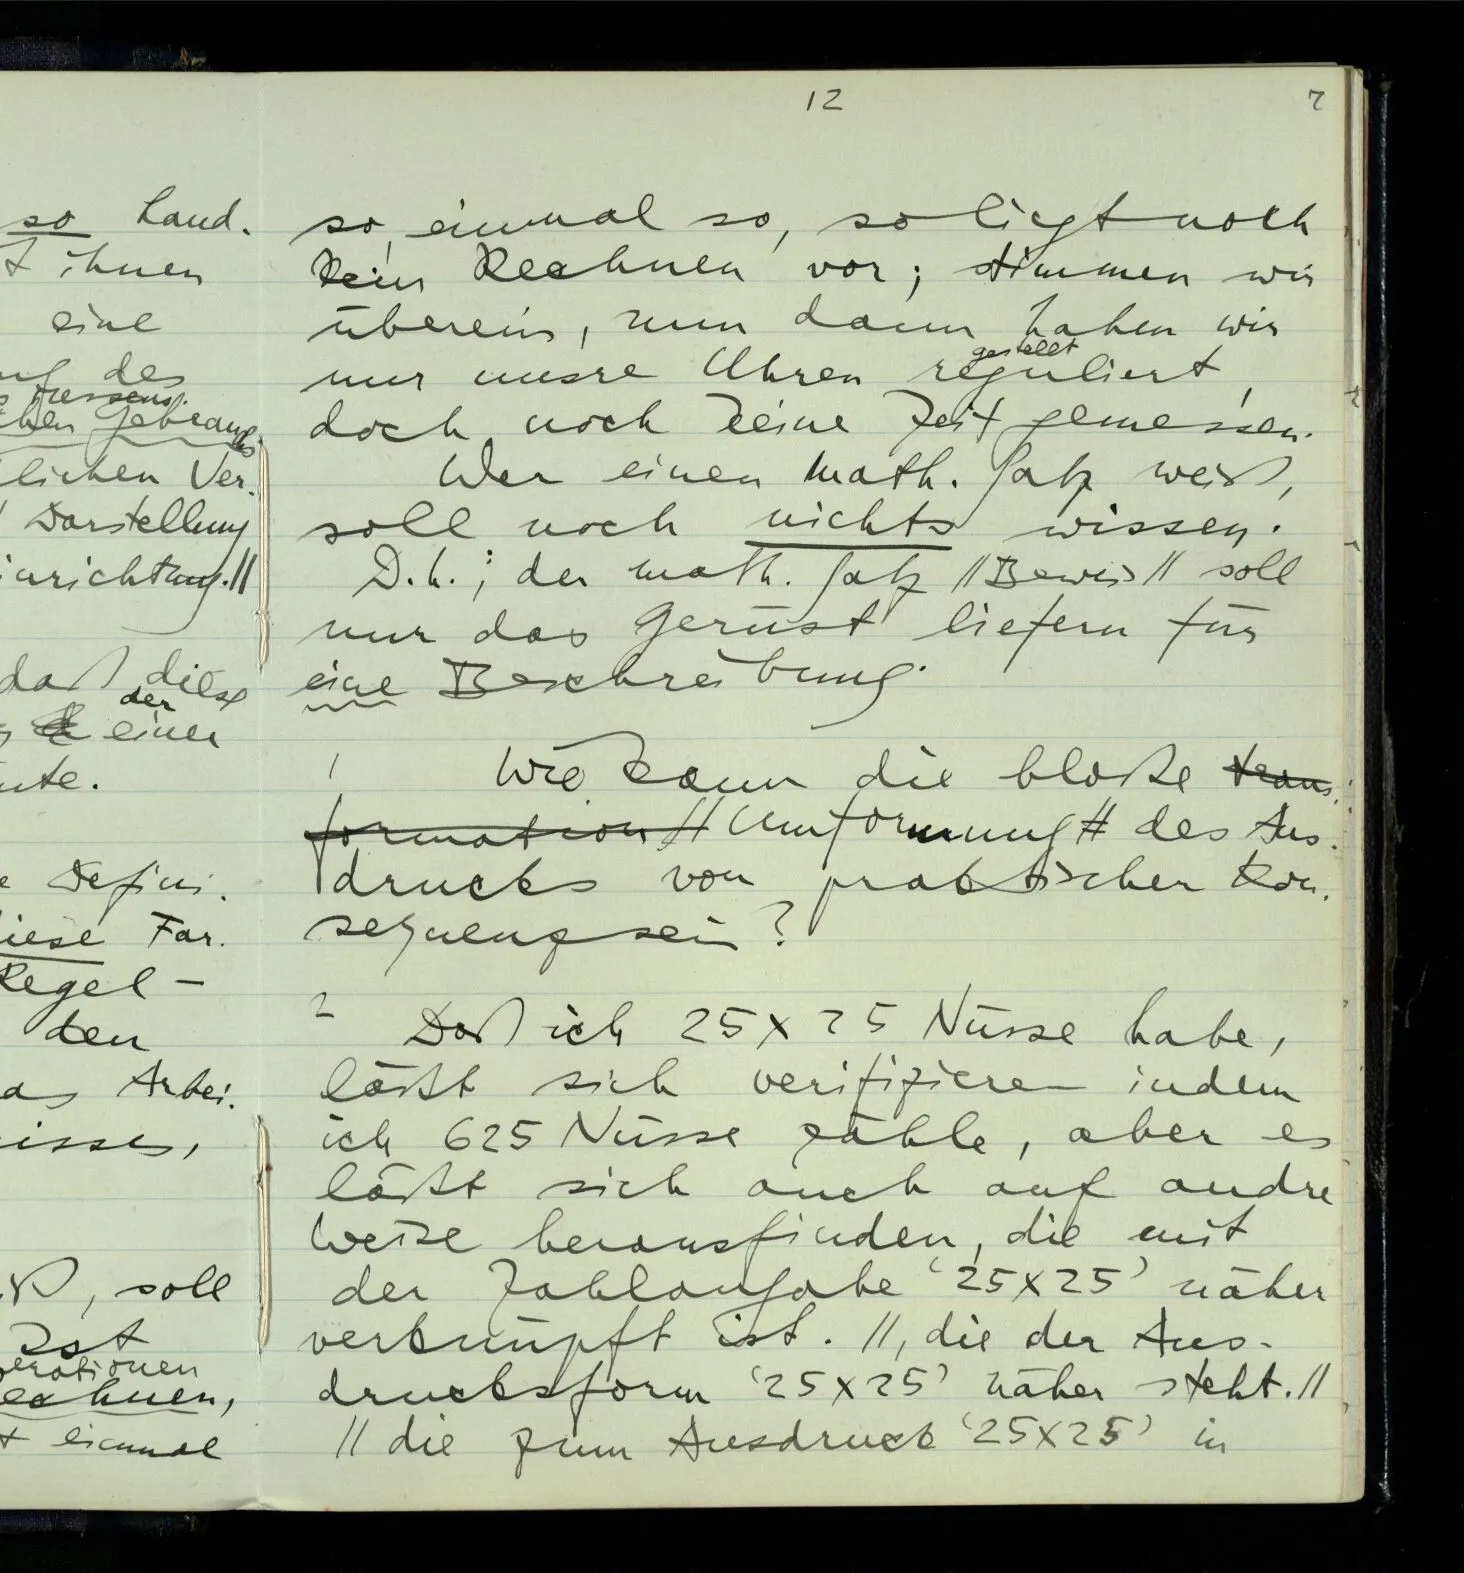 12
7
so land.
t ihnen
eine
des
fassens.
chen Gebrauchs
lichen Ver.
Darstellung
inrichtung.//
daß diese
der
einer
nte.
e Defini.
diese Far.
Regel –
den
as Arbei.
isses,
iß, soll
Ist
perationen
echnen,
t einmal
so, einmal so, so liegt noch
kein Rechnen vor; stimmen wir
überein, nun dann haben wir
gestellt
nur unsre Uhren reguliert,
doch noch keine Zeit gemessen.
Wer einen math. Satz weiß,
soll noch nichts wissen.
D.h.; der math. Satz //Beweis// soll
nur das Gerüst liefern für
eine Beschreibung.
/ Wie kann die bloße Trans.
formation // Umformung // des Aus.
drucks von praktischer Kon.
sequenz sein?
2 Daß ich 25 x 25 Nüsse habe,
läßt sich verifizieren indem
ich 625 Nüsse zähle, aber es
läßt sich auch auf andre
Weise herausfinden, die mit
der Zahlangabe ‘25x25’ näher
verknüpft ist. //, die der Aus-
drucksform ‘25x25’ näher steht.//
// die zum Ausdruck ‘25x25’ in